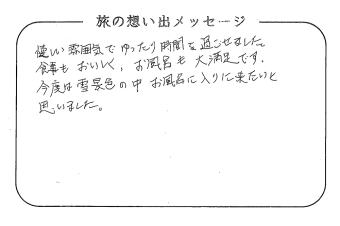 旅の想い出メッセージ
優しい雰囲気でゆったり時間を過ごせました。
食事もおいしく、お風呂も大満足です。
今度は雪景色の中お風呂に入りに来たいと
思いました。